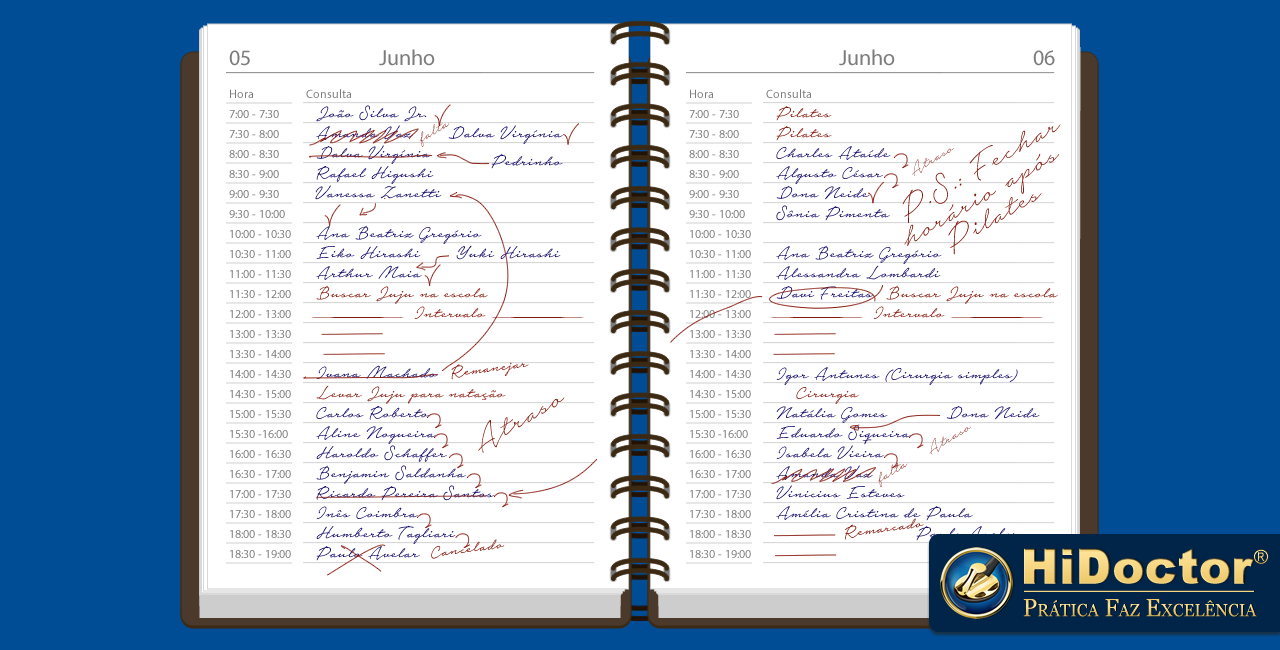 05 Junho
Hora Consulta
7:00 - 7:30 João Silva Jr.
7:30 - 8:00 Amanda Vaz falta Dalva Virgínia
8:00 - 8:30 Dalva Virgínia Pedrinho
8:30 - 9:00 Rafael Higushi
9:00 - 9:30 Vanessa Zanetti
9:30 - 10:00
10:00 - 10:30 Ana Beatriz Gregório
10:30 - 11:00 Eiko Hirashi Yuki Hirashi
11:00 - 11:30 Arthur Maia
11:30 - 12:00 Buscar Juju na escola
12:00 - 13:00 Intervalo
13:00 - 13:30
13:30 - 14:00
14:00 - 14:30 Ivana Machado Remanejar
14:30 - 15:00 Levar Juju para natação
15:00 - 15:30 Carlos Roberto
15:30 -16:00 Aline Nogueira Atraso
16:00 - 16:30 Haroldo Schaffer
16:30 - 17:00 Benjamin Saldanha
17:00 - 17:30 Ricardo Pereira Santos
17:30 - 18:00 Inês Coimbra
18:00 - 18:30 Humberto Tagliari
18:30 - 19:00 Paulo Avelar Cancelado
Junho 06
Hora Consulta
7:00 - 7:30 Pilates
7:30 - 8:00 Pilates
8:00 - 8:30 Charles Ataíde Atraso
8:30 - 9:00 Algusto César
9:00 - 9:30 Dona Neide
9:30 - 10:00 Sônia Pimenta
P.S.: Fechar
horário após
Pilates
10:00 - 10:30
10:30 - 11:00 Ana Beatriz Gregório
11:00 - 11:30 Alessandra Lombardi
11:30 - 12:00 Davi Freitas Buscar Juju na escola
12:00 - 13:00 Intervalo
13:00 - 13:30
13:30 - 14:00
14:00 - 14:30 Igor Antunes (Cirurgia simples)
14:30 - 15:00 Cirurgia
15:00 - 15:30 Natália Gomes Dona Neide
15:30 -16:00 Eduardo Siqueira Atraso
16:00 - 16:30 Isabela Vieira
16:30 - 17:00 Amanda Vaz falta
17:00 - 17:30 Vinicius Esteves
17:30 - 18:00 Amélia Cristina de Paula
18:00 - 18:30 Remarcado
18:30 - 19:00
HiDoctor®
Prática Faz Excelência